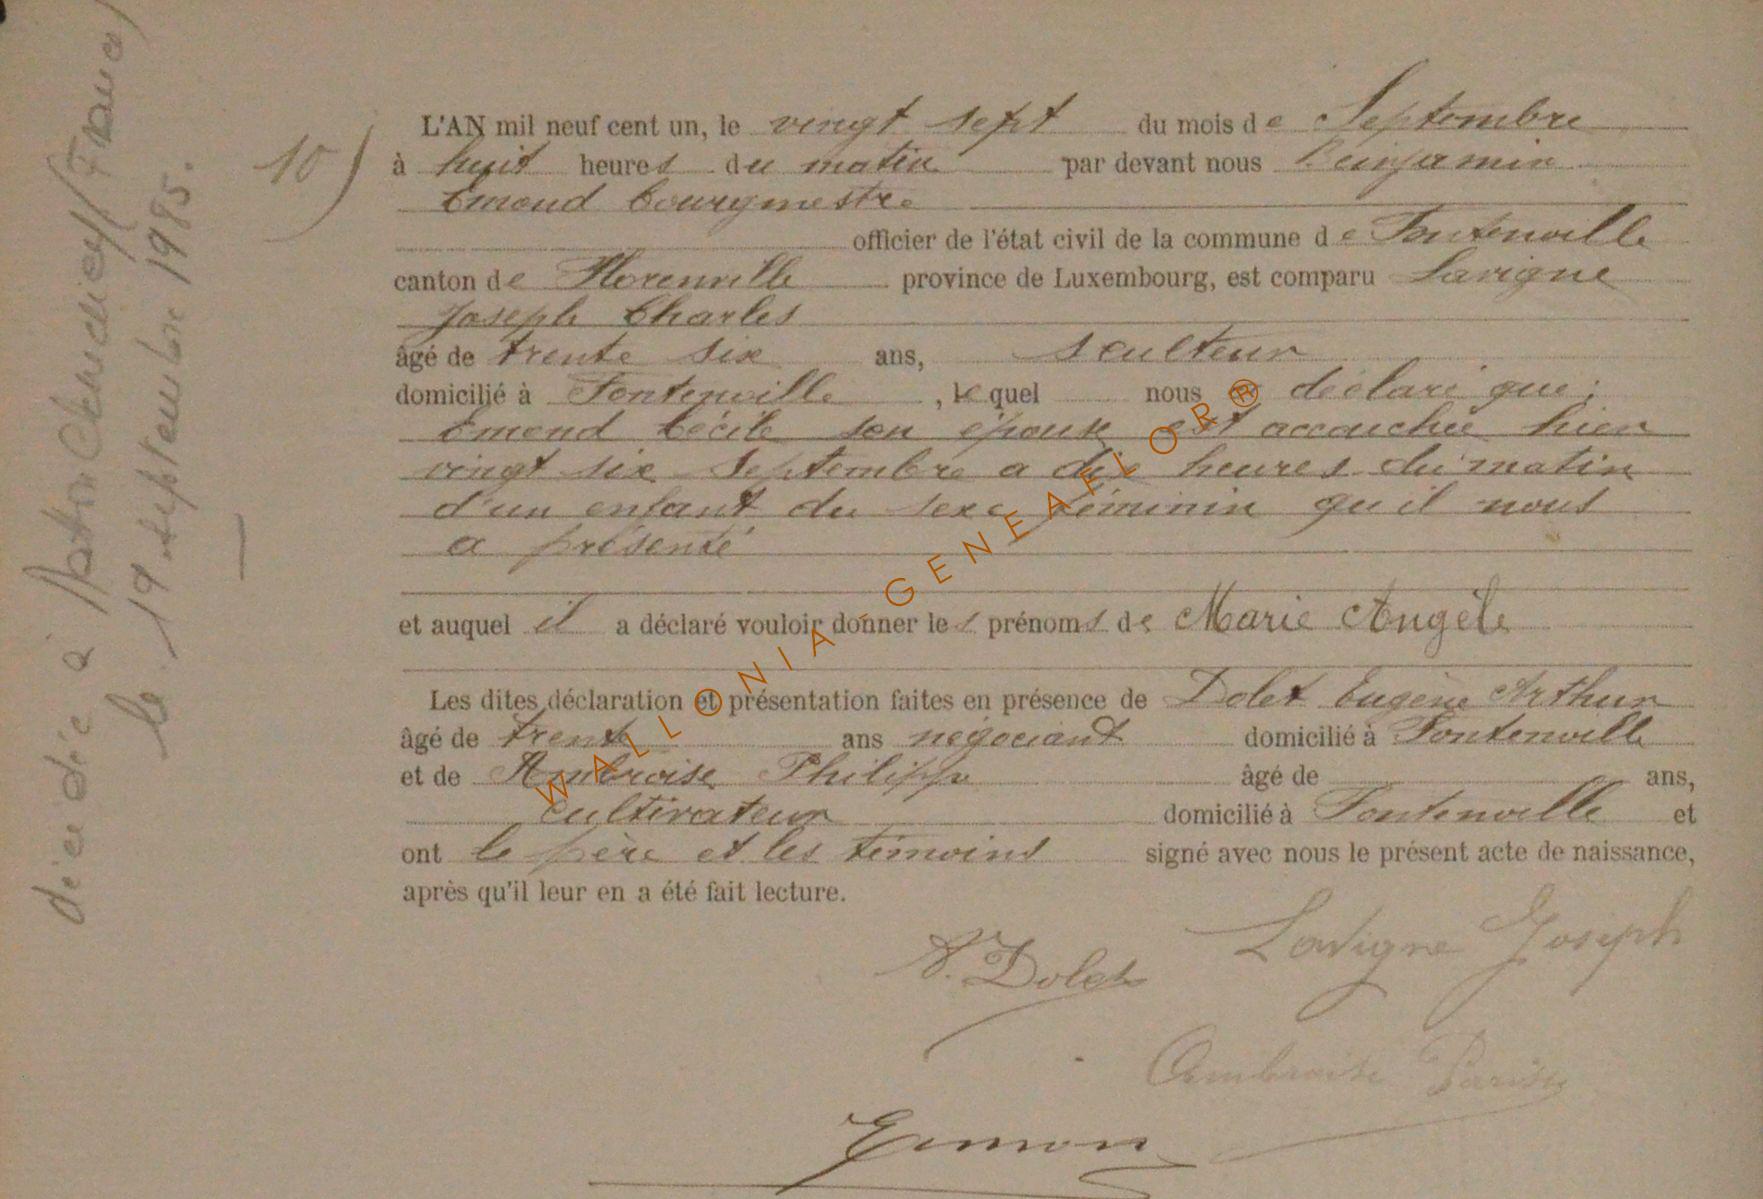 décédée à
le 19 septembre 1985.
10)
L'AN mil neuf cent un, le vingt sept du mois de Septembre
à huit heures du matin par devant nous Benjamin
Emond bourgmestre
officier de l'état civil de la commune de Fontenoille
canton de Florenville province de Luxembourg, est comparu Lavigne
Joseph Charles
âgé de trente six ans, sculteur
domicilié à Fontenoille, lequel nous a déclaré que;
Emond Cécile son épouse est accouchée hier
vingt six Septembre a dix heures du matin
d'un enfant du sexe féminin qu'il nous
a présenté
et auquel il a déclaré vouloir donner les prénoms de Marie Angèle
Les dites déclaration et présentation faites en présence de Dolet Eugène Arthur
âgé de trente ans négociant domicilié à Fontenoille
et de Ambroise Philippe âgé de ans,
cultivateur domicilié à Fontenoille et
ont le père et les témoins signé avec nous le présent acte de naissance,
après qu'il leur en a été fait lecture.
A. Dolet Lavigne Joseph
Ambroise
Emon
WALLONIA-GENEAFLOR®